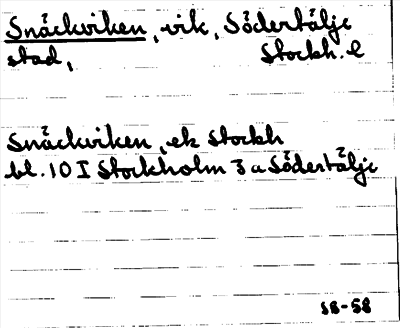 Snäckviken, vik, Södertälje
stad, Stockh. l
Snäckviken, ek Stockh
bl. 10 I Stockholm 3 a Södertälje
S8-58